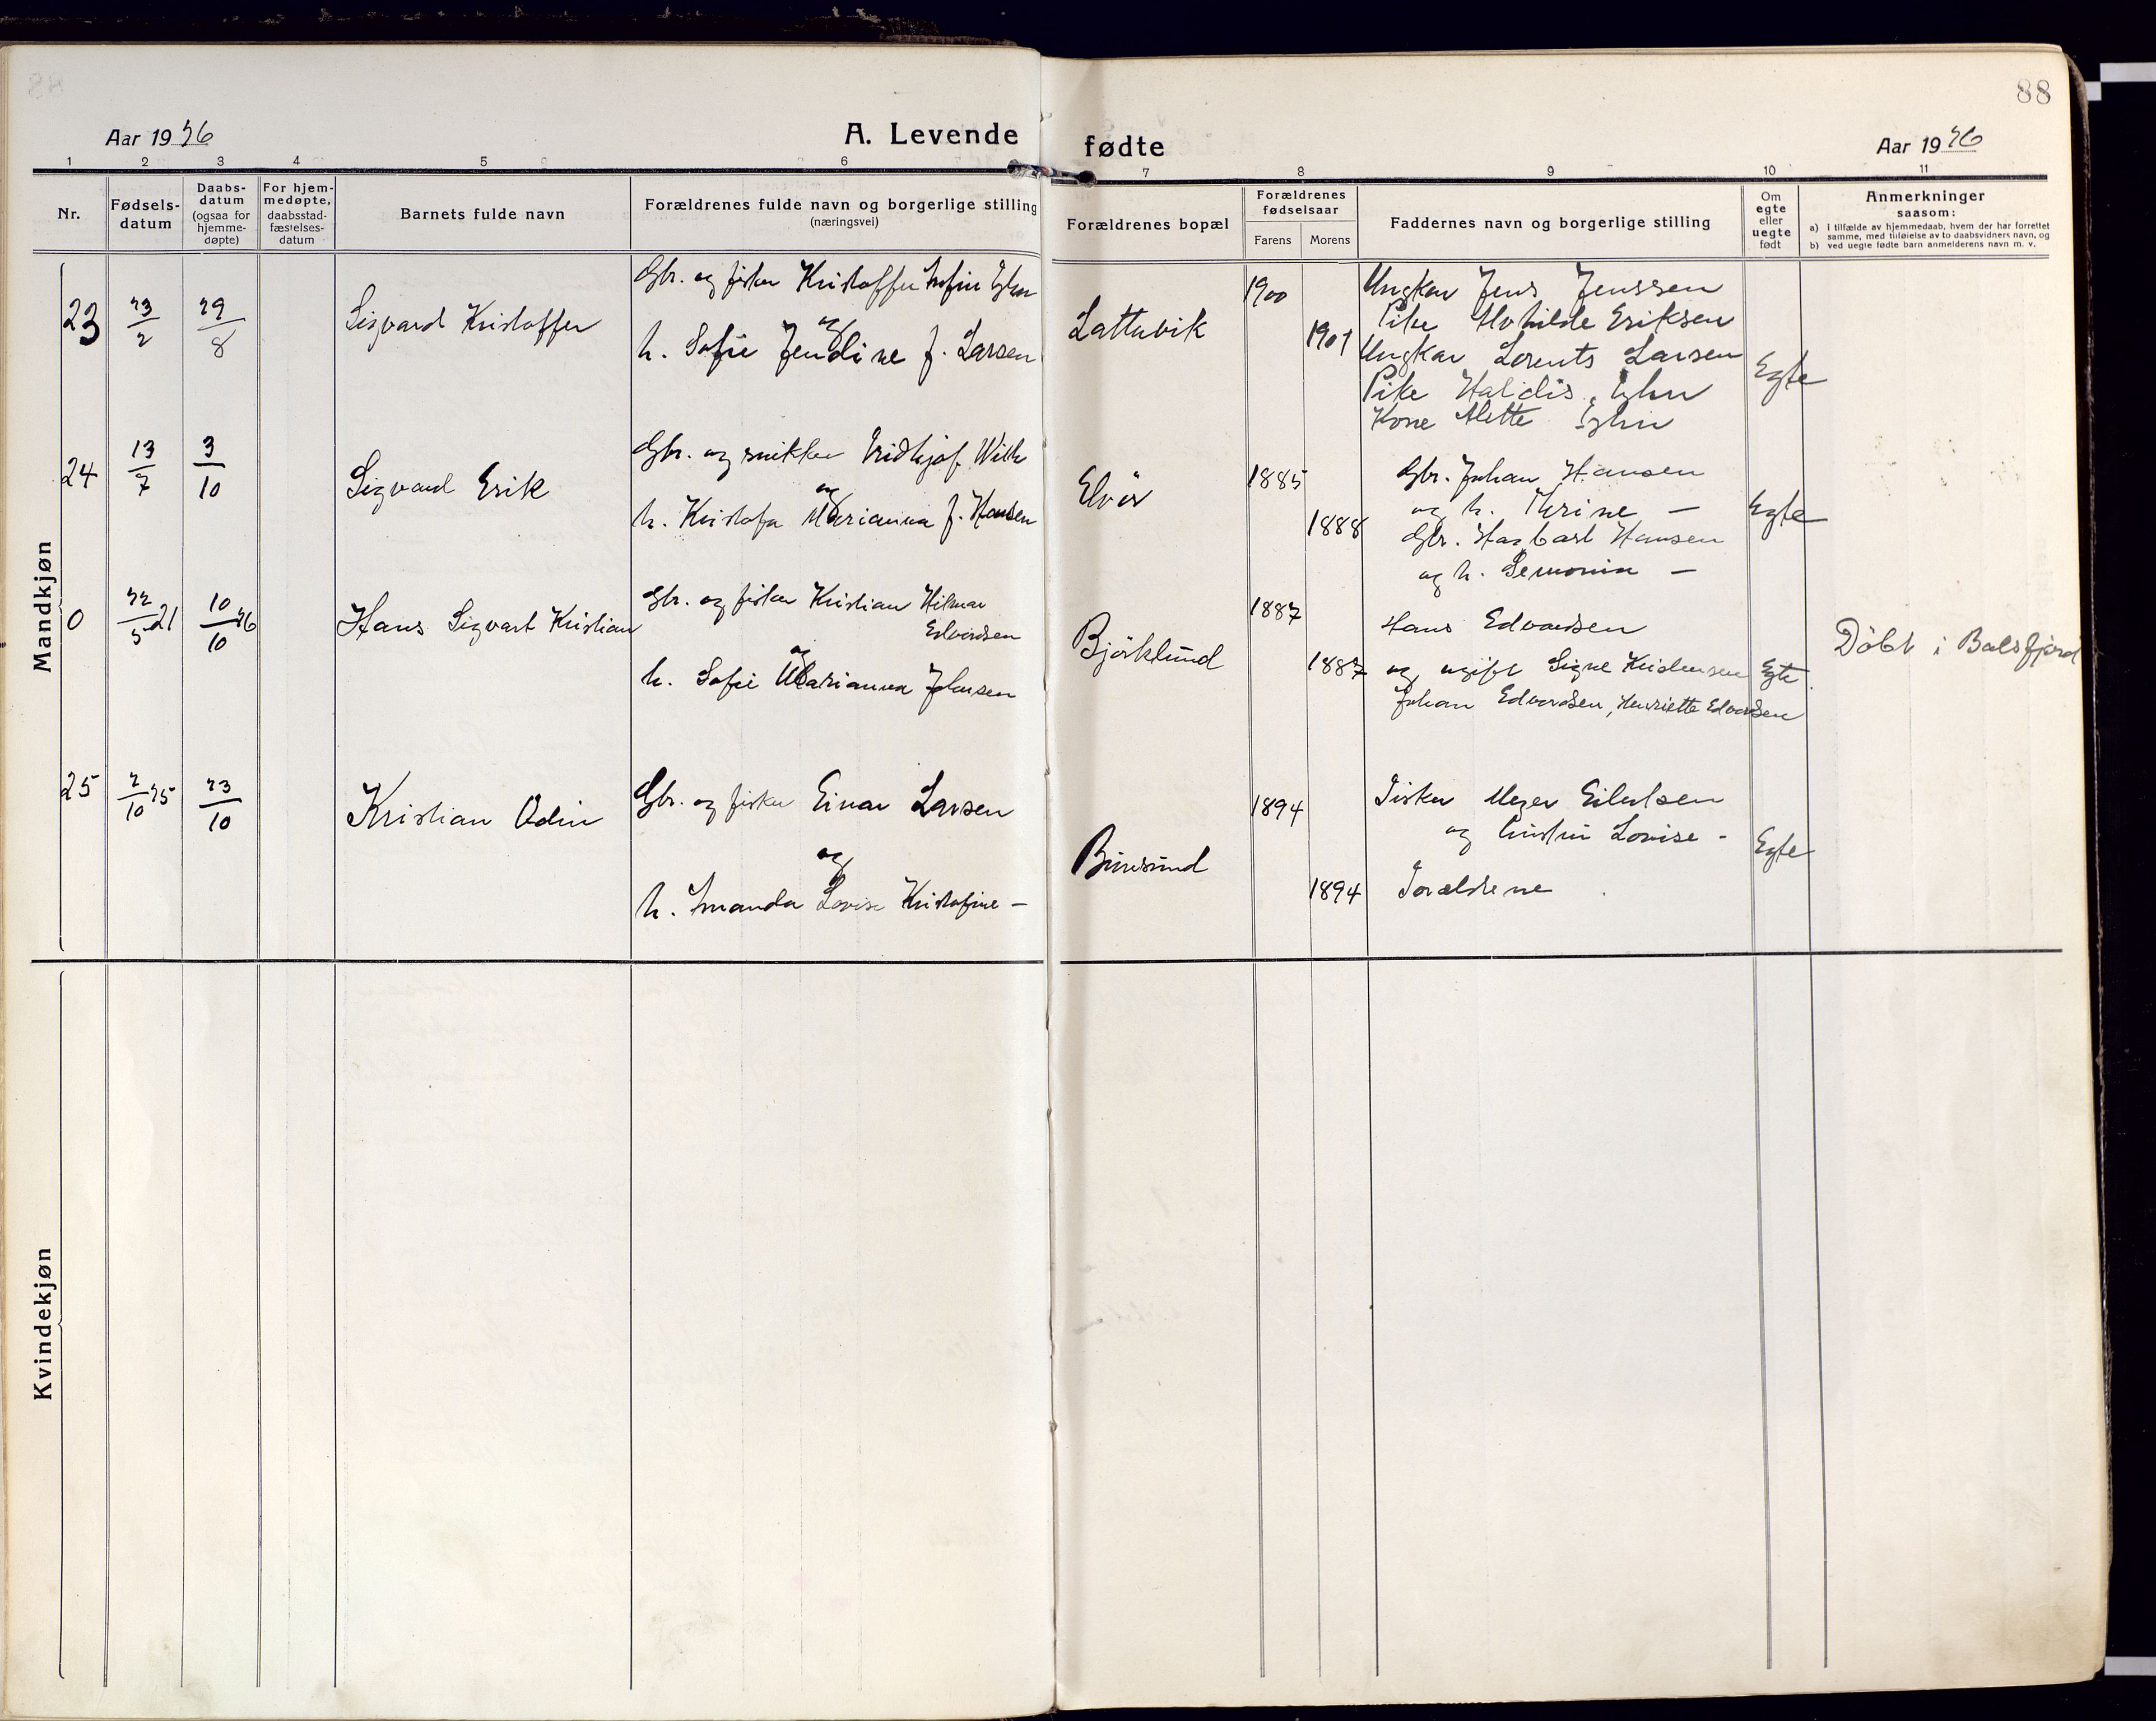 88
Aar 1926
A. Levende
fødte
Aar 1926
1 2 3 4 5 6 7 8 9 10 11
Nr.
Fødsels-
datum
Daabs-
datum
(ogsaa for
hjemme-
døpte)
For hjem-
medøpte,
daabsstad-
fæstelses-
datum
Barnets fulde navn
Forældrenes fulde navn og borgerlige stilling
(næringsvei)
Forældrenes bopæl
Forældrenes
fødselsaar
Farens Morens
Faddernes navn og borgerlige stilling
Om
egte
eller
uegte
født
Anmerkninger
saasom:
a) i tilfælde av hjemmedaab, hvem der har forrettet
samme, med tilføielse av to daabsvidners navn, og
b) ved uegte fødte barn anmelderens navn m. v.
Mandkjøn
23
23/2
29/8
Sigvard Kristoffer
Gbr. og fisker Kristoffer
og
h. Sofie Jendine f. Larsen
Lattervik
1900
1901
Ungkar Jens Jenssen
Pike Alvhilde Eriksen
Ungkar Lorents Larsen
Pike Haldis
Kone Alette
Egte
24
13/7
3/10
Sigvard Erik
Gbr. og snikker Fridtjof Wilh
og
h. Kristofa Marianna f. Hansen
Elvör
1885
1888
Gbr. Johan Hansen
og h. Thrine —
Gbr. Hagbart Hansen
og h. Semonia —
Egte
0
22/5 21
10/10 26
Hans Sigvart Kristian
Gbr. og fisker Kristian Hilmar
Edvardsen
og
h. Sofie Marianna Johnsen
Bjørklund
1887
1887
Hans Edvardsen
og ugift Signe Kristensen
Johan Edvardsen, Henriette Edvardsen
Egte
Döbt i Balsfjord
25
2/10 25
23/10
Kristian Odin
Gbr. og fisker Einar Larsen
og
h. Amanda Lovise Kristofine —
Buvesund
1894
1894
Fisker Meyer Eilertsen
og Lovise -
Forældrene
Egte
Kvindekjøn